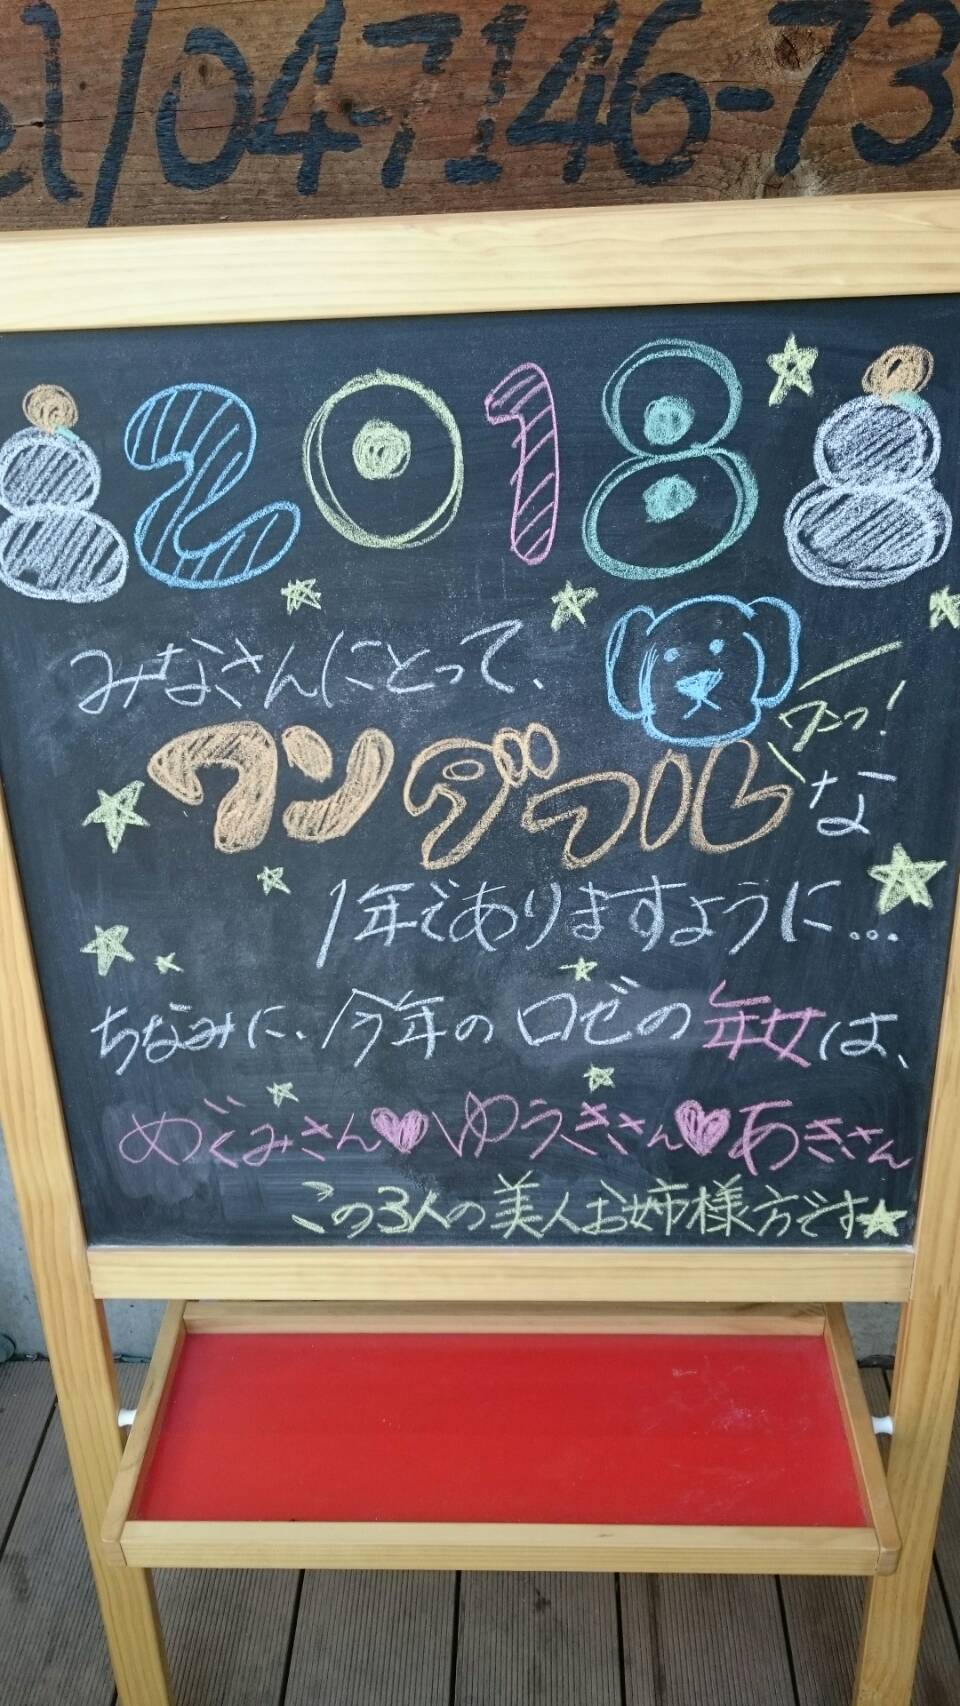 el/04-7146-73
2018
みなさんにとって、
ワンっ!
ワンダフルな
1年でありますように...
ちなみに、今年のロゼの年女は、
めぐみさん♥ゆうきさん♥あきさん
この3人の美人お姉様方です★